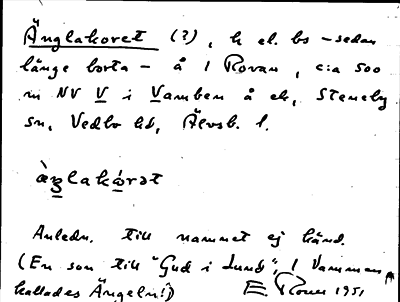 Änglakoret (?), h el. bs - sedan
länge borta - å 1 Rovan, c:a 500
m NV V i Vamben å ek, Steneby
sn, Vedbo hd, Älvsb. l.
ànglakórət
Anledn. till namnet ej känd.
(En son till "Gud i Lund", i Vammen,
kallades Ängeln!) E. Rome 1951